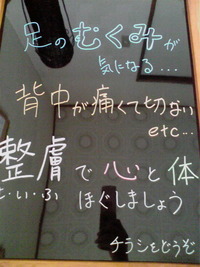 足のむくみが
気になる...
背中が痛くて切ない
etc...
整膚で心と体
せ・い・ふ ほぐしましょう
チラシをどうぞ